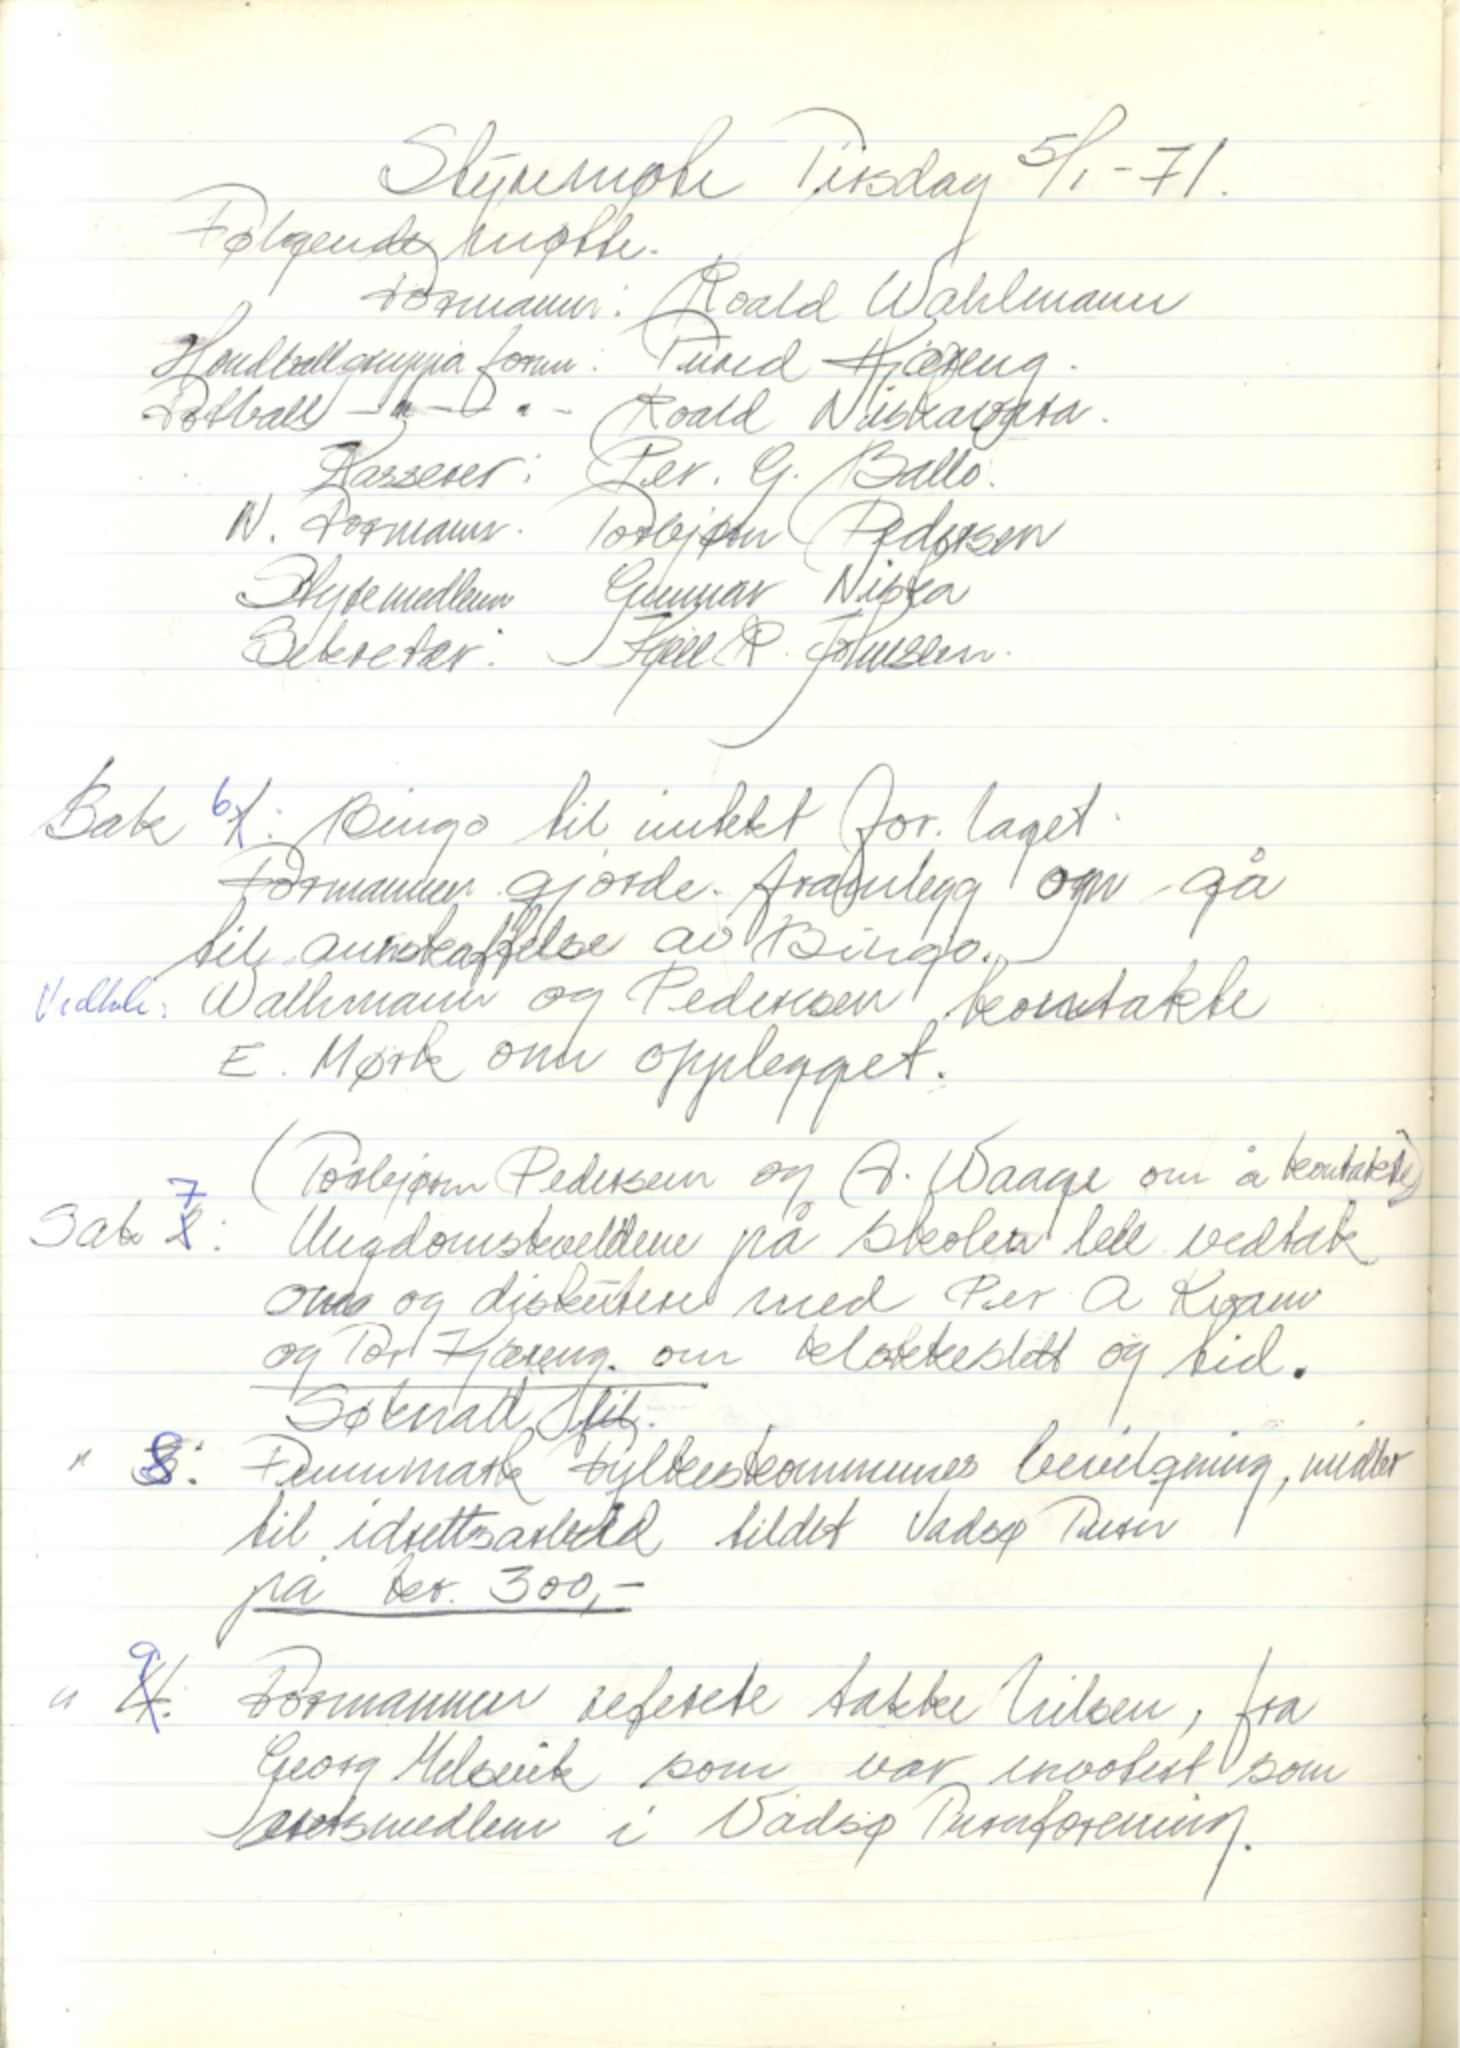 Styremøte Tirsdag 5/1-71.
Følgende møtte.
Formann: Roald Wahlmann
Handballgruppa form: Turid Kjæreng.
Fotball -"- " - Roald Niskavaara.
Kasserer: Per. G. Ballo.
N. Formann. Torbjørn Pedersen
Styremedlem Gunnar Niska
Sekretær: Kjell R. Johnsen.
Sak 6: Bingo til inntekt for laget.
Formannen gjorde framlegg om gå
til annskaffelse av Bingo.
Vedtak: Walhmann og Pedersen kontakte
E. Mørk om opplegget.
(Torbjørn Pedersen og A. Waage om å kontakte)
Sak 7: Ungdomskveldene på skolen ble vedtak
om og diskutere med Per A Kvam
og Tor Kjæreng. om klokkeslett og tid.
Søknad til.
" 8: Finnmark Fylkeskommunes bevilgning, midler
til idrettsarbeid tildelt Vadsø Turn
på kr. 300,-
" 9: Formannen referete takke hilsen, fra
Georg Melsvik som var invotert som
æresmedlem i Vadsø Turnforening.